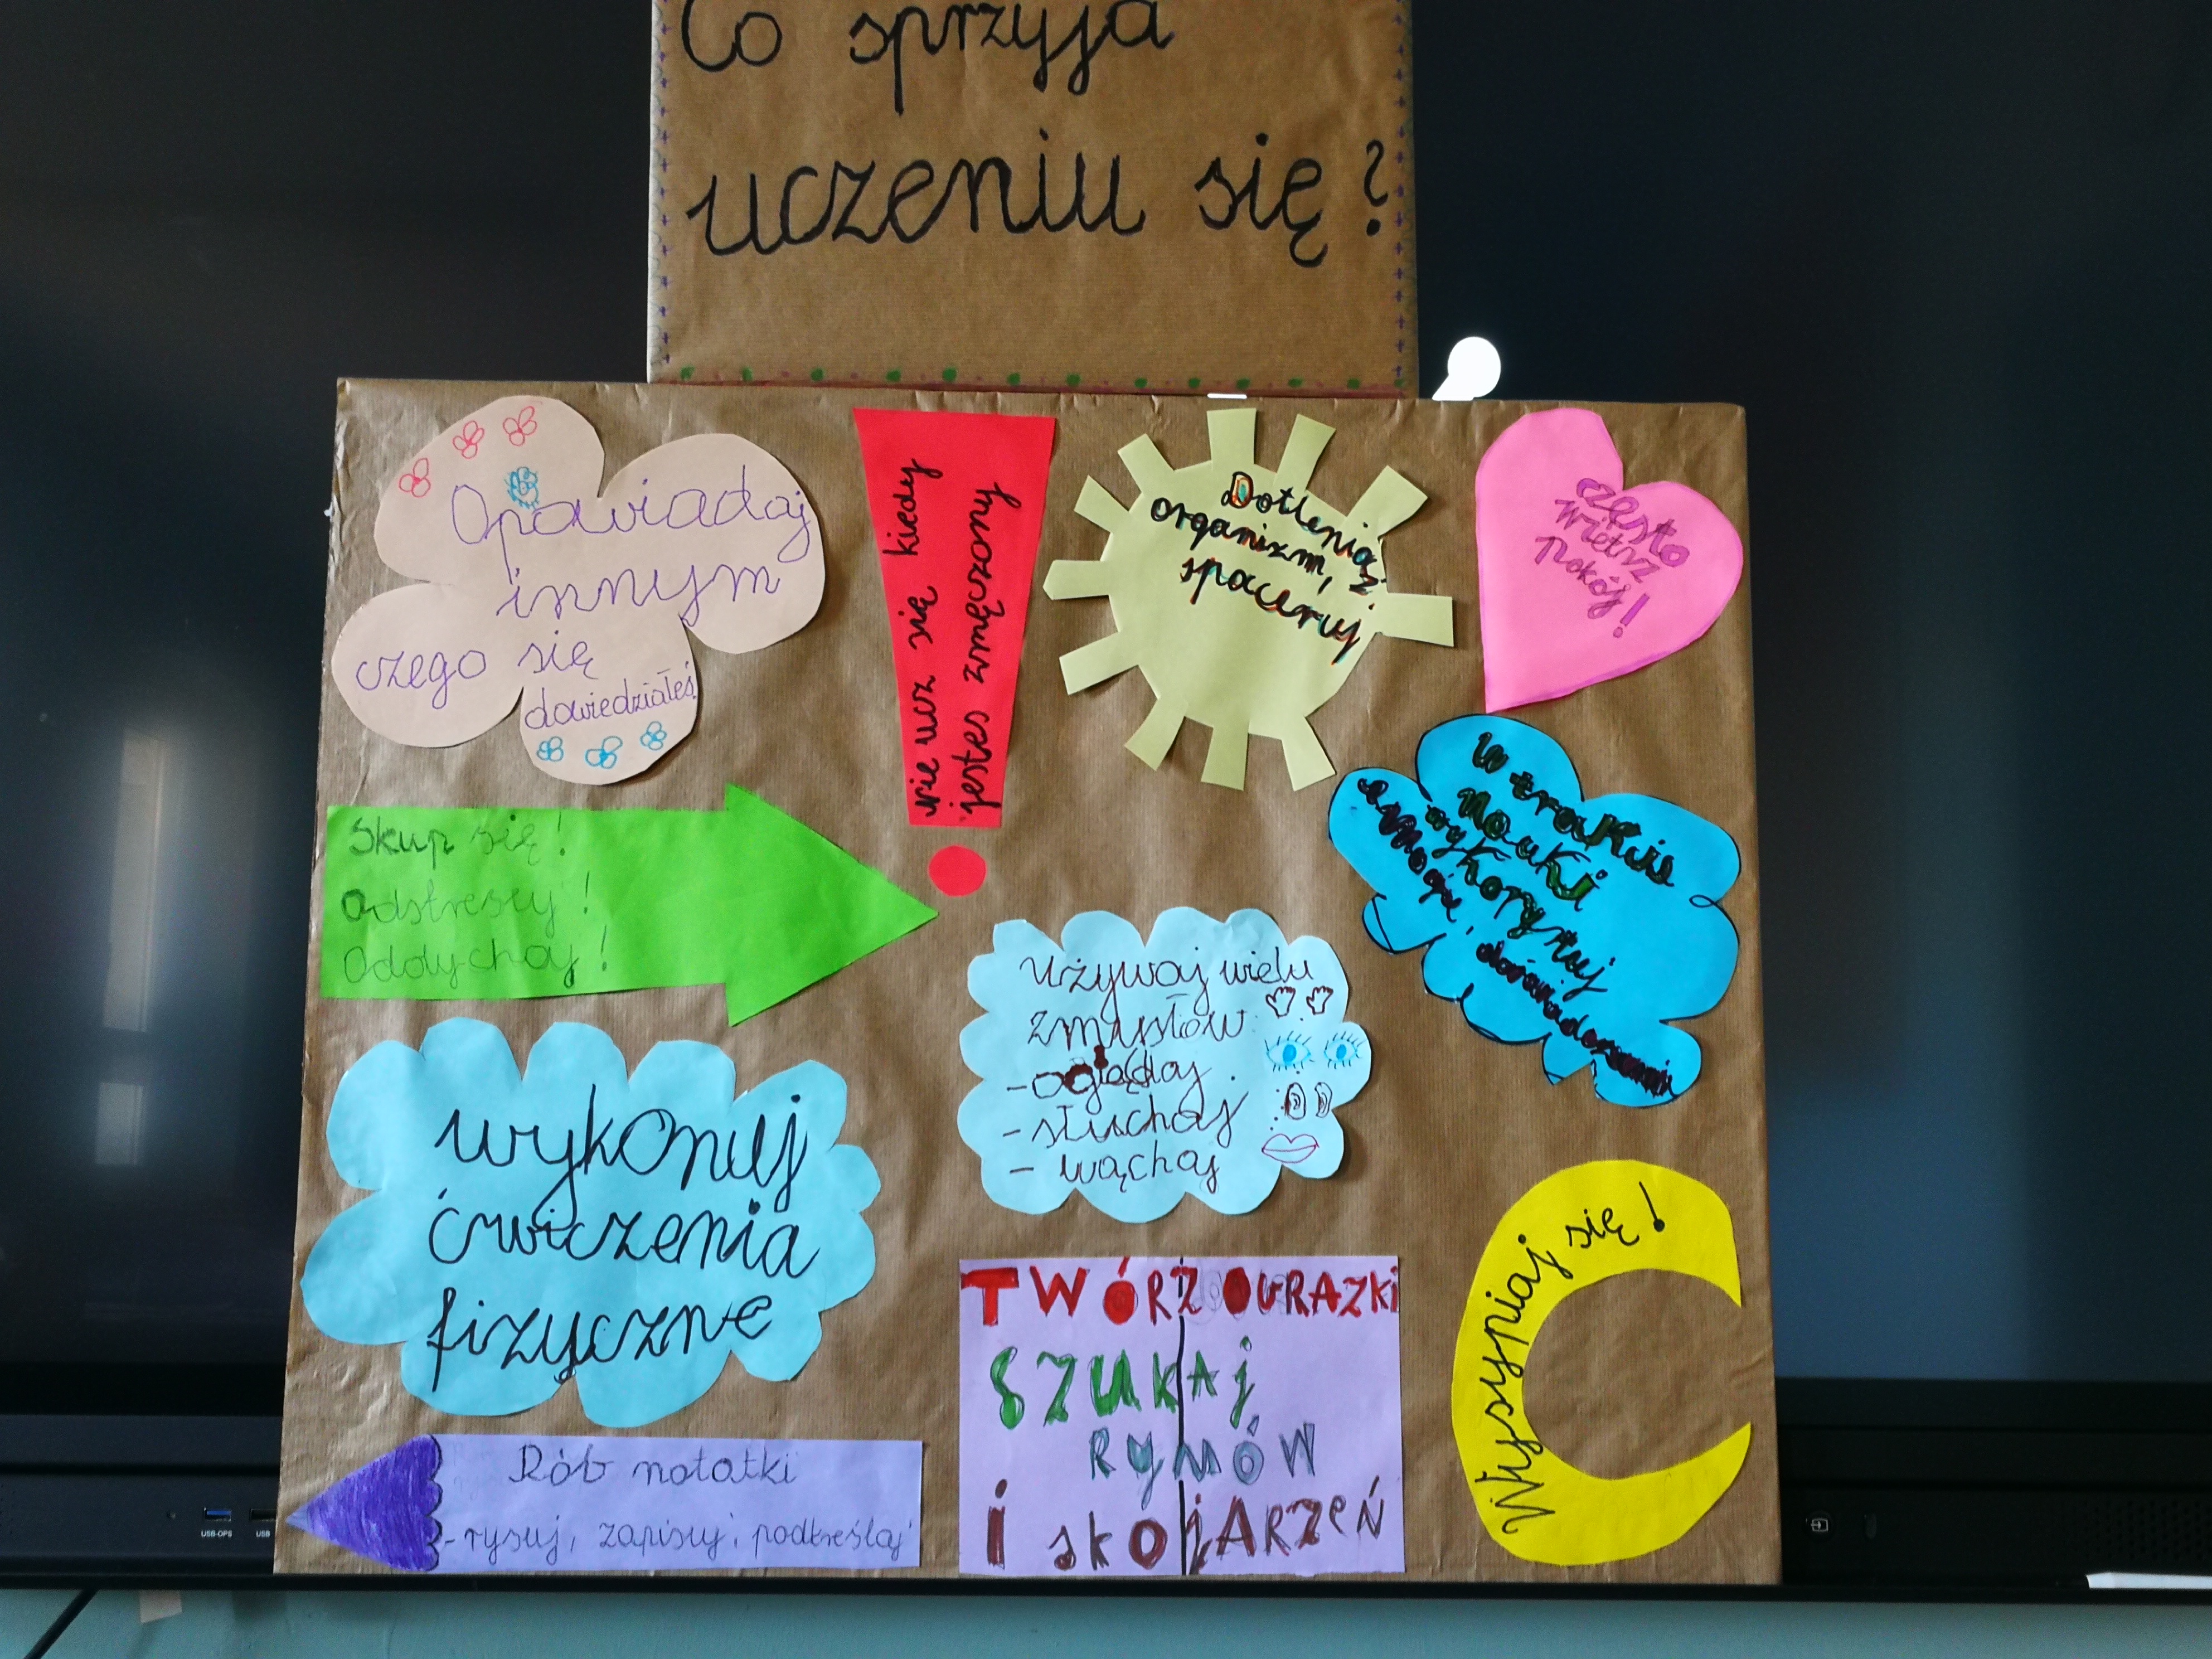 Co sprzyja
uczeniu się?
Opowiadaj
innym
czego się
dowiedziałeś
nie ucz się kiedy
jestes zmęczony
Dotleniaj
organizm,
spaceruj
często
wietrz
pokój!
Skup się!
Odstresuj!
Oddychaj!
W trakcie
nauki
wykorzystuj
emocje, doświadczenia
używaj wielu
zmysłów
-oglądaj
-słuchaj
- wąchaj
wykonuj
ćwiczenia
fizyczne
TWÓRZ OBRAZKI
SZUKAj
RYMÓW
i skojARZEŃ
Wysypiaj się!
Rób notatki
-rysuj, zapisuj, podkreślaj
USB-OPS
USB